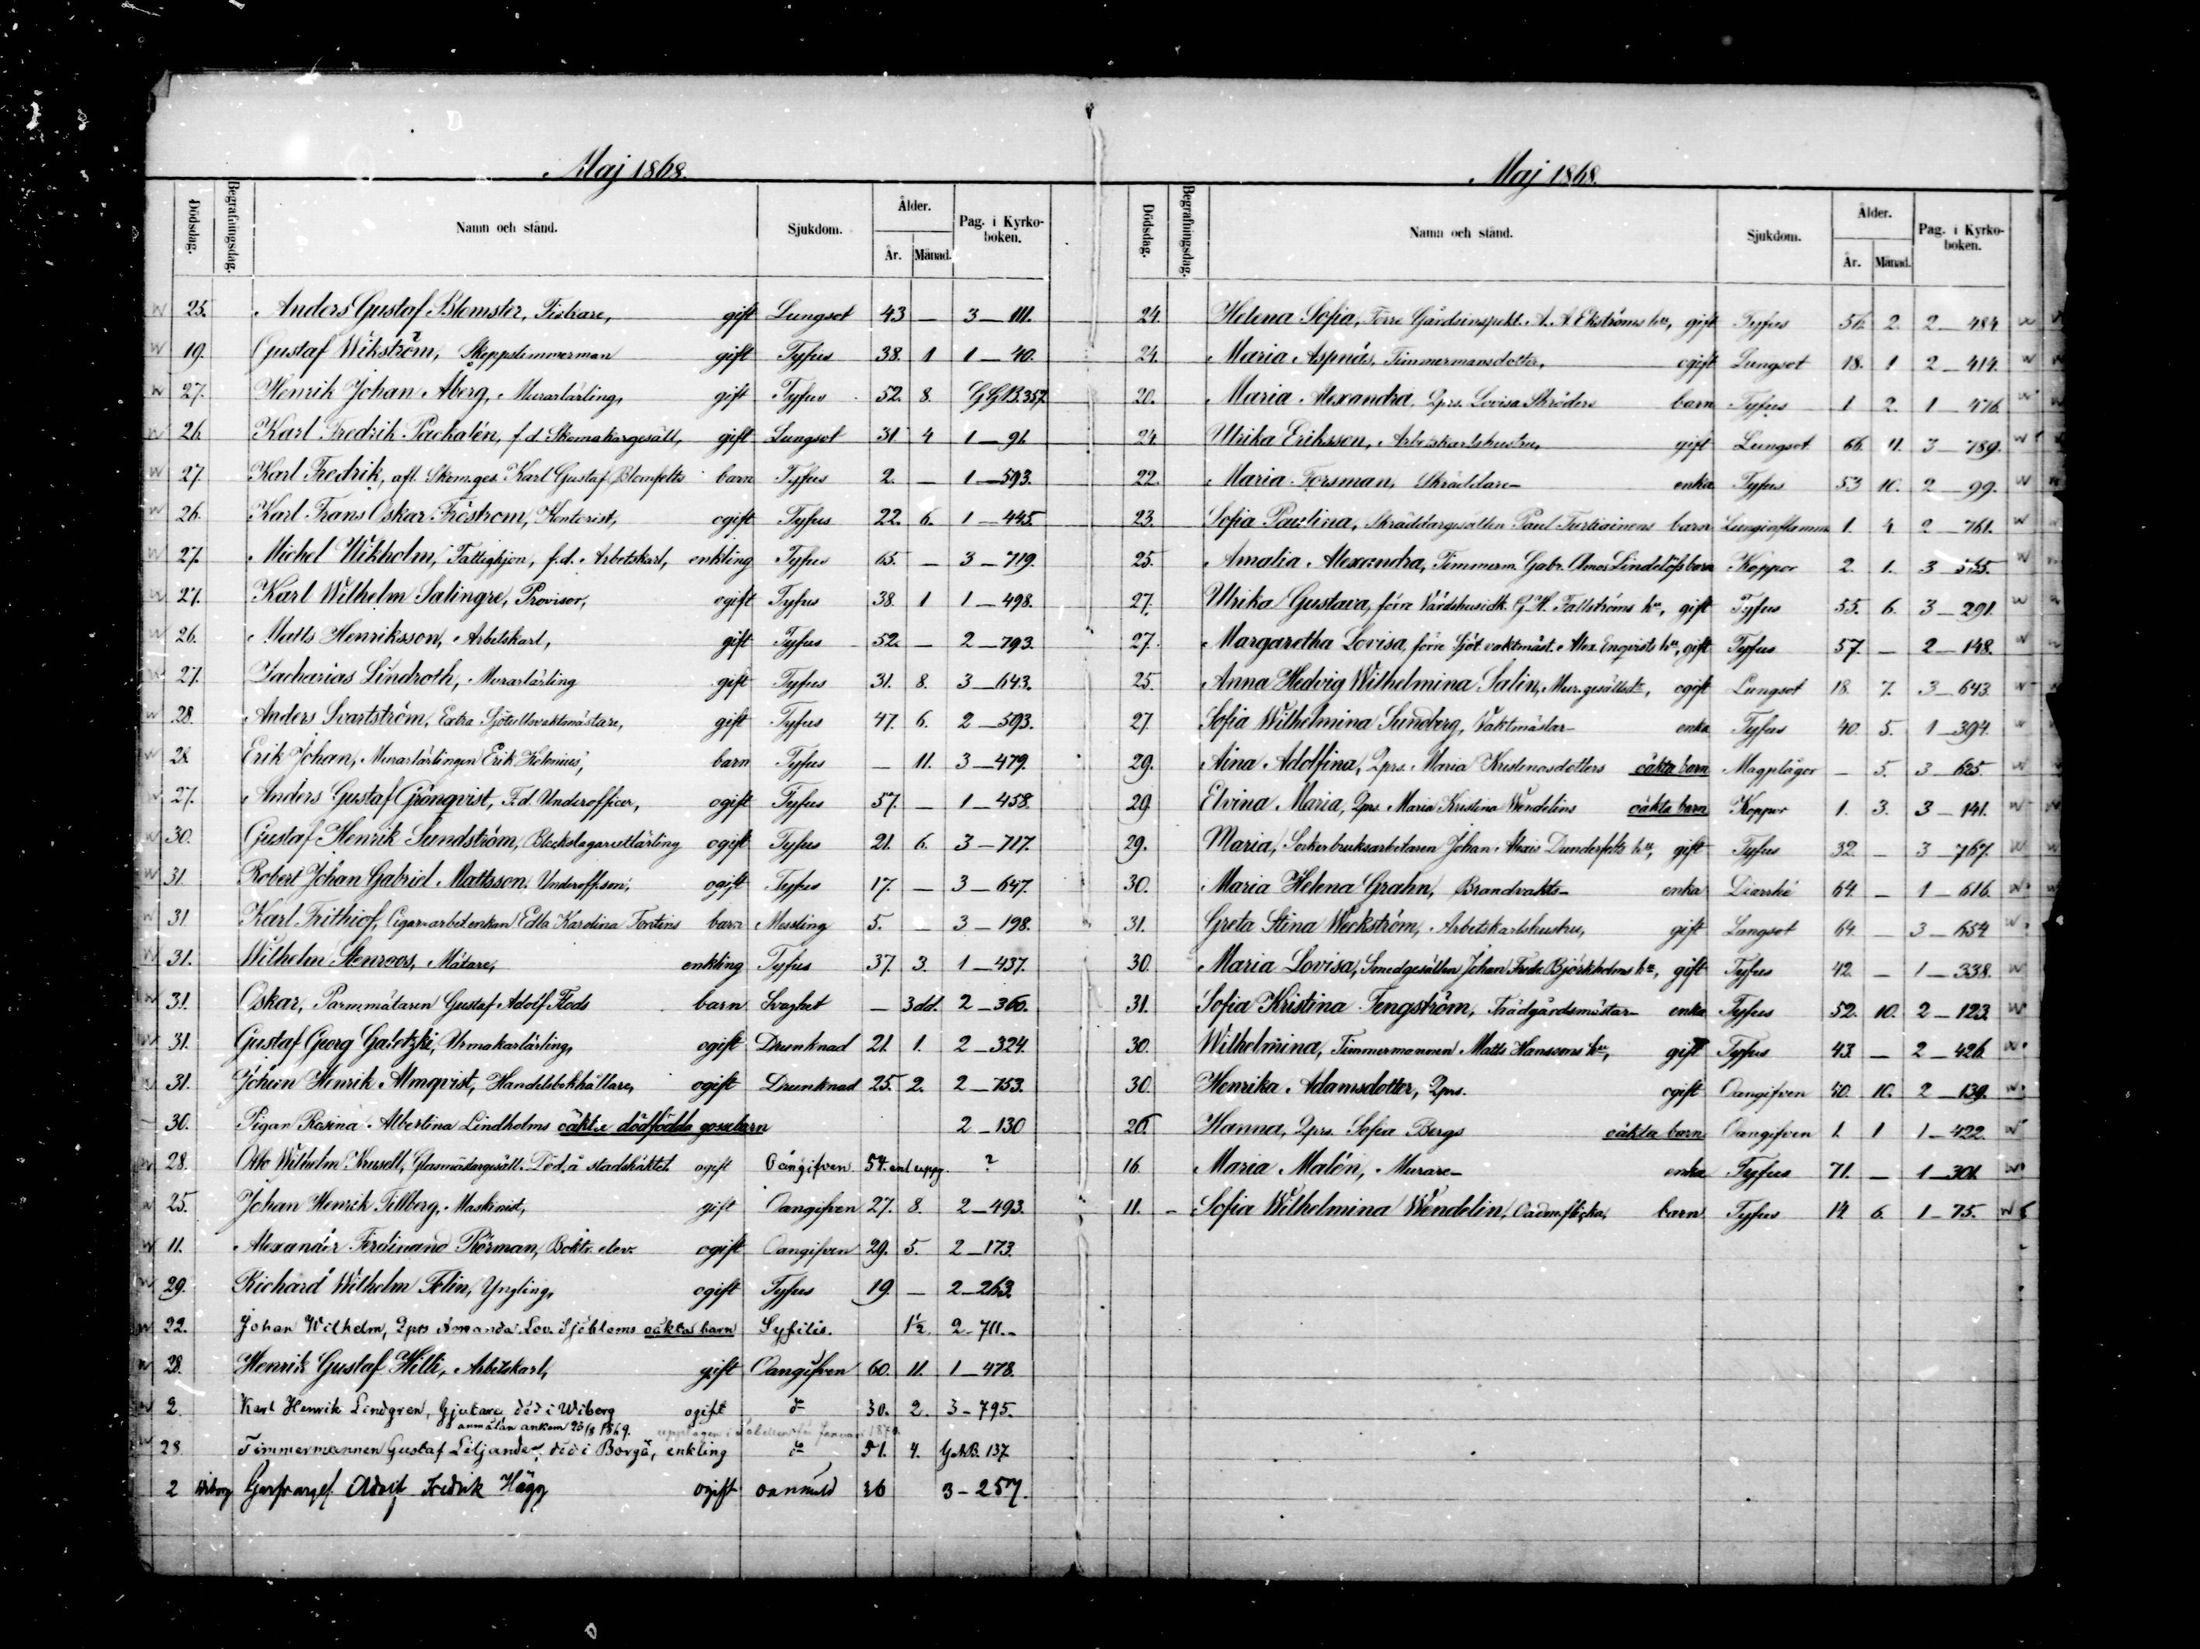 Maj 1868.
Dödsdag. Begrafningsdag. Namn och stånd. Sjukdom. Ålder. År. Månad. Pag. i Kyrko-boken.
25. Anders Gustaf Blomster, Fiskare, gift Lungsot 43 — 3 — 111.
19. Gustaf Wikström, Skeppstimmerman gift Tyfus 38. 1 1 — 40.
27. Henrik Johan Åberg, Murarlärling, gift Tyfus 52. 8. G.G.B. 357.
26. Karl Fredrik Pachalén, f.d. Skomakargesäll, gift Lungsot 31 4 1 — 91.
27. Karl Fredrik, afl. Skom.ges. Karl Gustaf Blomfelts barn Tyfus 2. — 1 — 593.
26. Karl Frans Oskar Fröström, Kontorist, ogift Tyfus 22. 6. 1 — 445.
27. Michel Wikholm, Fattighjon, f.d. Arbetskarl, enkling Tyfus 65. — 3 — 719.
27. Karl Wilhelm Salingre, Provisor, ogift Tyfus 38. 1 1 — 498.
26. Matts Henriksson, Arbetskarl, gift Tyfus 52. — 2 — 793.
27. Zacharias Lindroth, Murarlärling gift Tyfus 31. 8. 3 — 643.
28. Anders Svartström, Extra Sjötullvaktmästare, gift Tyfus 47. 6. 2 — 593.
28 Erik Johan, Murarlärlingen Erik Helenius', barn Tyfus — 11. 3 — 479.
27. Anders Gustaf Grönqvist, F.d. Underofficer, ogift Tyfus 57. — 1 — 458.
30. Gustaf Henrik Sundström, Bleckslagarelärling ogift Tyfus 21. 6. 3 — 717.
31. Robert Johan Gabriel Mattsson, Underoff.son, ogift Tyfus 17. — 3 — 647.
31 Karl Frithiof, Cigarrarbet.enkan Edla Karolina Forstins barn Messling 5. — 3 — 198.
31. Wilhelm Stenroos, Målare, enkling Tyfus 37. 3. 1 — 437.
31. Oskar, Parmmätaren Gustaf Adolf Flods barn Svaghet — 3 dd. 2 — 360.
31. Gustaf Georg Galetzki, Urmakarlärling, ogift Drunknad 21. 1. 2 — 324.
31. Johan Henrik Almqvist, Handelsbokhållare, ogift Drunknad 25. 2. 2 — 753.
30. Pigan Rosina Albertina Lindholms oäkta dödfödda gossebarn 2 — 130
28. Otto Wilhelm Krusell, Glasmästargesäll. Död å stadshäktet ogift Oangifven 54. enl. uppg. ?
25. Johan Henrik Tillberg, Maskinist, gift Oangifven 27. 8. 2 — 493.
11. Alexander Ferdinand Thörman, Boktr. elev. ogift Oangifven 29. 5. 2 — 173.
29. Richard Wilhelm Felin, Yngling, ogift Tyfus 19. — 2 — 263.
22. Johan Wilhelm, Qprs Amanda Lov. Sjöbloms oäkta barn Syfilis. 1½ 2 — 711.
28. Henrik Gustaf Hilli, Arbetskarl, gift Oangifven 60. 11. 1 — 478.
2 Karl Henrik Lindgren, Gjutare död i Wiborg ogift do 30. 2. 3 — 795.
anmälan ankom 23/8 1869.
28. Timmermannen Gustaf Liljander, död i Borgå, enkling do 51. 4. G.A.B. 137.
2 Wiborg Garfvaregs. Adolf Fredrik Hägg ogift oanmäld 26 3 — 257.
Maj 1868.
Dödsdag. Begrafningsdag. Namn och stånd. Sjukdom. Ålder. År. Månad. Pag. i Kyrko-boken.
24. Helena Sofia, Förre Gårdsinspekt. A. A. Ekströms hu, gift Tyfus 56. 2. 2 — 484
24. Maria Aspnäs, Timmermansdotter, ogift Lungsot 18. 1 2 — 414.
20. Maria Alexandra, Qprs. Lovisa Skröders barn Tyfus 1 2. 1 — 476.
24 Ulrika Eriksson, Arbetskarlshustru, gift Lungsot 66. 11. 3 — 789.
22. Maria Forsman, Skräddare- enka Tyfus 53 10. 2 — 99.
23. Sofia Paulina, Skräddargesällen Paul Turtiainens barn Lunginflamm. 1. 4 2 — 761.
25. Amalia Alexandra, Timmerm. Gabr. Amos Lindelöfs barn Koppor 2. 1. 3 — 555.
27. Ulrika Gustava, förre Värdshusidk. G. H. Fallströms hu, gift Tyfus 55. 6. 3 — 291.
27. Margaretha Lovisa, förre Sjöt.vaktmäst. Alex. Enqvists hu, gift Tyfus 57. — 2 — 148.
25. Anna Hedvig Wilhelmina Salin, Mur.gesällsdr, ogift Lungsot 18. 7. 3 — 643
27 Sofia Wilhelmina Sundberg, Vaktmästar- enka Tyfus 40. 5. 1 — 394.
29. Aina Adolfina, Qprs. Maria Kristinasdotters oäkta barn Magplågor — 5. 3 — 625.
29 Elvina Maria, Qprs. Maria Kristina Wendelins oäkta barn Koppor 1. 3. 3 — 141.
29. Maria, Sockerbruksarbetaren Johan Alexis Dunderfelts hu, gift Tyfus 32. — 3 — 767.
30. Maria Helena Grahn, Brandvakts- enka Diarrhé 64. — 1 — 616.
31. Greta Stina Weckström, Arbetskarlshustru, gift Lungsot 64. — 3 — 654
30. Maria Lovisa, Smedgesällen Johan Fredr. Björkholms hu, gift Tyfus 42. — 1 — 338.
31. Sofia Kristina Tengström, Trädgårdsmästar- enka Tyfus 52. 10. 2 — 123.
30. Wilhelmina, Timmermannen Matts Hanssons hu, gift Tyfus 43. — 2 — 426.
30. Henrika Adamsdotter, Qprs. ogift Oangifven 50. 10. 2 — 139.
26. Hanna, Qprs. Sofia Bergs oäkta barn Oangifven 1. 1 1 — 422.
16. Maria Malén, Murare- enka Tyfus 71. — 1 — 301.
11. Sofia Wilhelmina Wendelin, flicka, barn Tyfus 14. 6. 1 — 75.